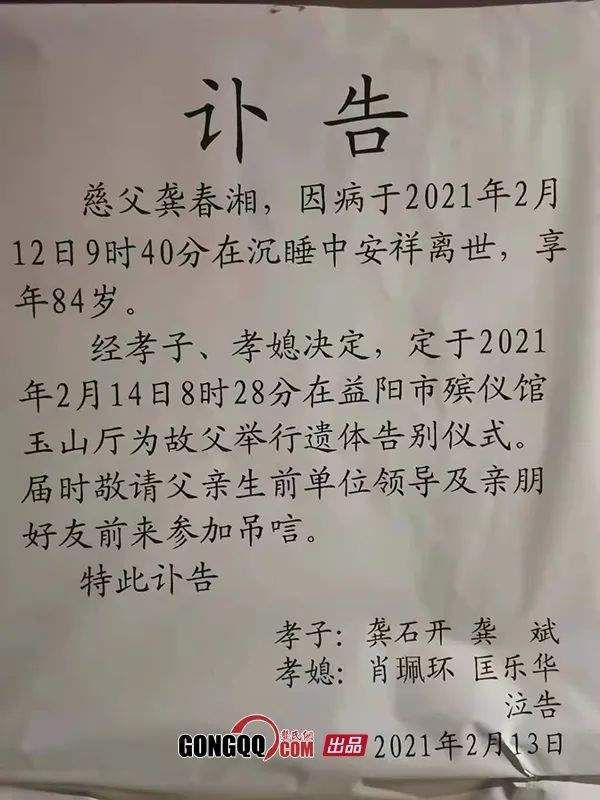 讣 告
慈父龚春湘，因病于2021年2月
12日9时40分在沉睡中安祥离世，享
年84岁。
经孝子、孝媳决定，定于2021
年2月14日8时28分在益阳市殡仪馆
玉山厅为故父举行遗体告别仪式。
届时敬请父亲生前单位领导及亲朋
好友前来参加吊唁。
特此讣告
孝子：龚石开 龚 斌
孝媳：肖珮环 匡乐华
泣告
2021年2月13日
GONGQQ.COM 龚氏网 出品